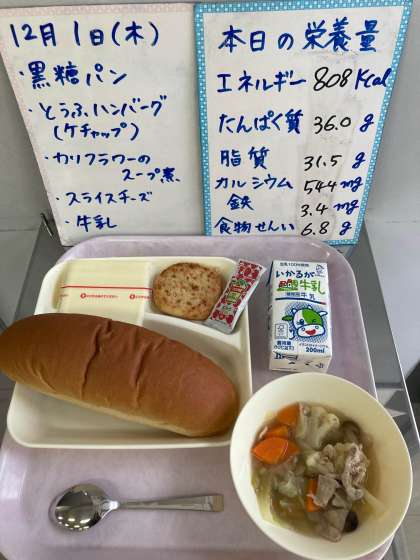 12月1日(木)
・黒糖パン
・とうふハンバーグ
(ケチャップ)
・カリフラワーの
スープ煮
・スライスチーズ
・牛乳
本日の栄養量
エネルギー 808 Kcal
たんぱく質 36.0 g
脂質 31.5 g
カルシウム 544 mg
鉄 3.4 mg
食物せんい 6.8 g
いかるが
牛乳
200ml